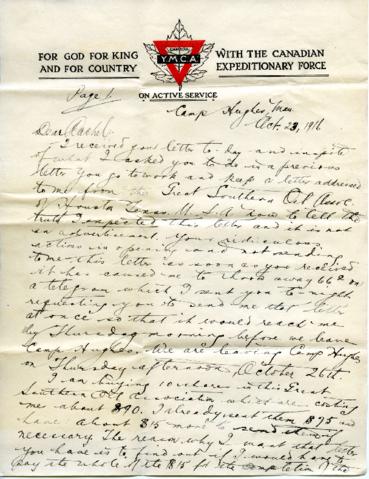 FOR GOD FOR KING
AND FOR COUNTRY
CANADIAN
Y.M.C.A
WITH THE CANADIAN
EXPEDITIONARY FORCE
ON ACTIVE SERVICE
Page 1.
Camp Hughes, Man.
Oct. 23, 1916
Dear Rachel,
I received your letter to-day and in spite
of what I asked you to do in a previous
letter you go to work and keep a letter addressed
to me from the Great Southern Oil Assoc.
of Houston Texas U.S.A. now to tell the
truth I expected that letter and it is not
an advertisement your ridiculous
actions in opening and not sending
to me this letter as soon as you received
it has caused me to throw away 66¢ on
a telegram which I sent you to-night
requesting you to send me that letter
at once so that it would reach me
by Thursday morning before we leave
Camp Hughes. We are leaving Camp Hughes
on Thursday afternoon, October 26th
I am buying 10 shares in this Great
Southern Oil Association which are costing
me about $90. I already sent them $75 and
have about $15 more to send them if
necessary. The reason why I want that letter
you have is to find out if I would have to
pay the whole of the $15 for the completion of the